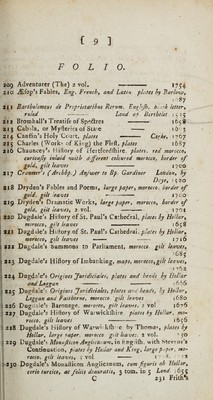 [ 9 ]
FOLIO.
209 Adventurer (The) 2 vol. 1754
210 Æsop's Fables, Eng. French, and Latin plates by Barlow, 1687
211 Bartholomeus de Proprietatibus Rerum. English. black letter, ruled Lond by Berthelet 1535
212 Bromhall's Treatise of Spectres 1658
213 Cabala, or Mysteries of State
214 Canfin's Holy Court, plates Corke. 1767
215 Charles (Works of King) the First, plates 1687
216 Chauncey's History of Hertfordshire. plates. red morocco, curiously inlaid with different coloured morocco, border of gold, gilt leaves 1700
217 Cranmer's (Archbp.) Answer to Bp. Gardiner London, by Daye, 1580
218 Dryden's Fables and Poems, large paper, morocco. border of gold, gilt leaves 1700
219 Dryden's Dramatic Works, large paper, morocco, border of gold, gilt leaves, 2 vol. 1701
220 Dugdale's History of St. Paul's Cathedral, plates by Hollar, morocco, gilt leaves 1658
221 Dugdale's History of St. Paul's Cathedral. plates by Hollar, morocco, gilt leaves 1716
222 Dugdale's Summons to Parliament, morocco gilt leaves, 1685
223 Dugdale's History of Imbanking, maps, morocco, gilt leaves,
224 Dugdale's Origines Juridiciales, plates and heads by Hollar and Loggan 1666
225 Dugdale's Origines Juridiciales, plates and heads, by Hollar, Loggan and Faithorne, morocco gilt leaves 1680
226 Dugdale's Baronage, morocco, gilt leaves. 2 vol 1676
227 Dugdale's History of Warwickshire plates by Hollar, morocco. gilt leaves 1656
228 Dugdale's History of Warwickshire by Thomas, plates by Hollar, large paper, morocco gilt leaves. 2 vol.
229 Dugdale's Monasticon Anglicanum, in English, with Stevens's Continuation, plates by Hollar and King, large paper, morocco. gilt leaves, 5 vol
230 Dugdale's Monasticon Anglicanum, cum figuris ab Hollar, corio turcico, ac foliis deauratis, 3 tom. in 5 Lond. 1655
C 231 Frith's